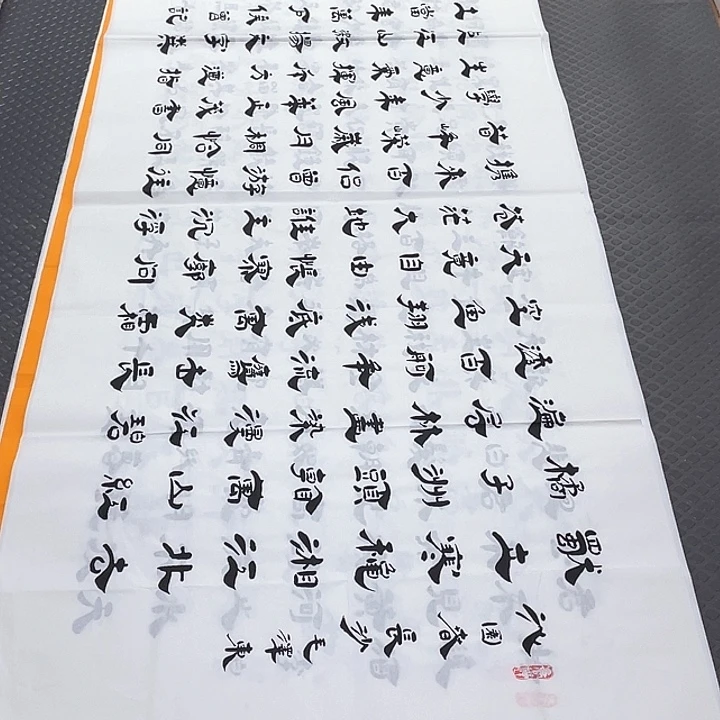 沁園春 長沙 毛澤東
獨立寒龝湘江北去
橘子洲頭看萬山紅
遍層林盡染漫江碧
透百舸爭流鷹擊長
空魚翔淺底萬類霜
天競自由悵寥廓問
蒼茫大地誰主沉浮
攜來百侶曾游憶往
昔崢嶸歲月稠恰同
學少年風華正茂書
生意氣揮斥方遒指
點江山激揚文字糞
土當年萬户侯曾記